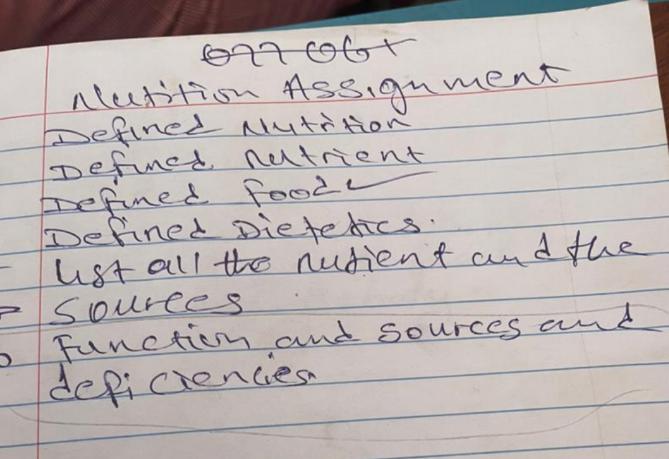 Nutition Assignment
Defined Nutrition
Defined Nutrient
Defined food
Defined Dietetics.
list all the nutient and the
sources
function and sources and
deficiencies.